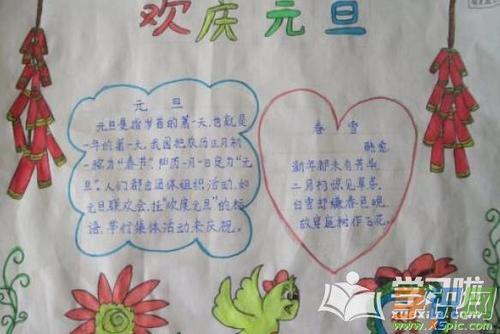 欢庆元旦
元 旦
元旦是指岁首的第一天,也就是
一年的第一天。我国把农历正月初
一称为"春节",阳历一月一日定为"元
旦"。人们都会团体组织活动,如
元旦联欢会,挂"欢度元旦"的标
语,举行集体活动来庆祝。
春 雪
韩愈
新年都未有芳华,
二月初惊见草芽。
白雪却嫌春色晚,
故穿庭树作飞花。
学习啦
xuexila.com
www.X5pic.com